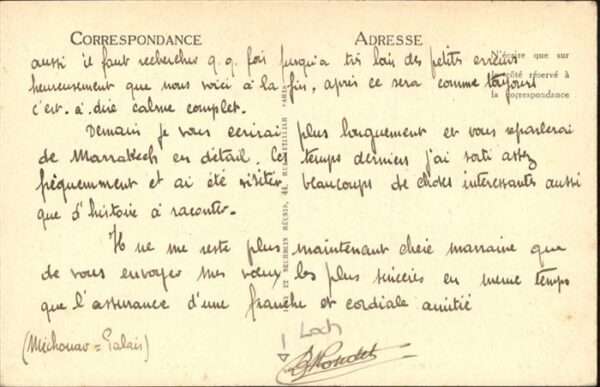 CORRESPONDANCE
ADRESSE
N'écrire que sur
le côté réservé à
la correspondance
aussi il faut rechercher q.q. fois jusqu'a très loin des petits erreurs
heureusement que nous voici à la fin, après ce sera comme toujours
c'est.à.dire calme complet.
Demain je vous ecrirai plus longuement et vous reparlerai
de Marrakech en détail. Ces temps derniers j'ai sorti assez
fréquemment et ai été visiter beaucoups de choses interessantes aussi
que d'histoire à raconter.
Il ne me reste plus maintenant chère marraine que
de vous envoyer mes vœux les plus sincères en meme temps
que l'assurance d'une franche et cordiale amitié
(Méchouar = Palais)